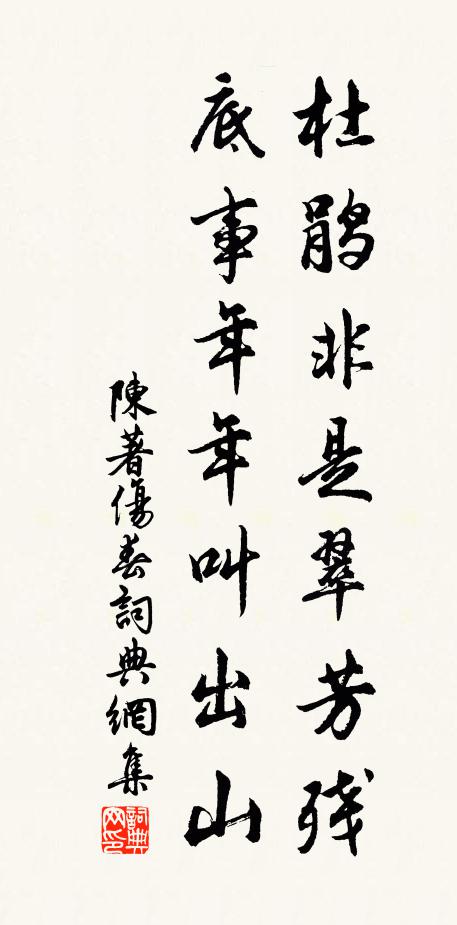 杜鹃非是翠芳残
底事年年叫出山
陳著傷春詞典網集
詞典网印